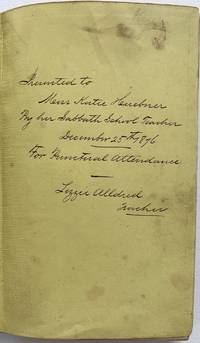 Presented to
Miss Katie Heuebner
By her Sabbath School Teacher
December 25th 1896
For Punctual Attendance
Lizzie Alldred
Teacher